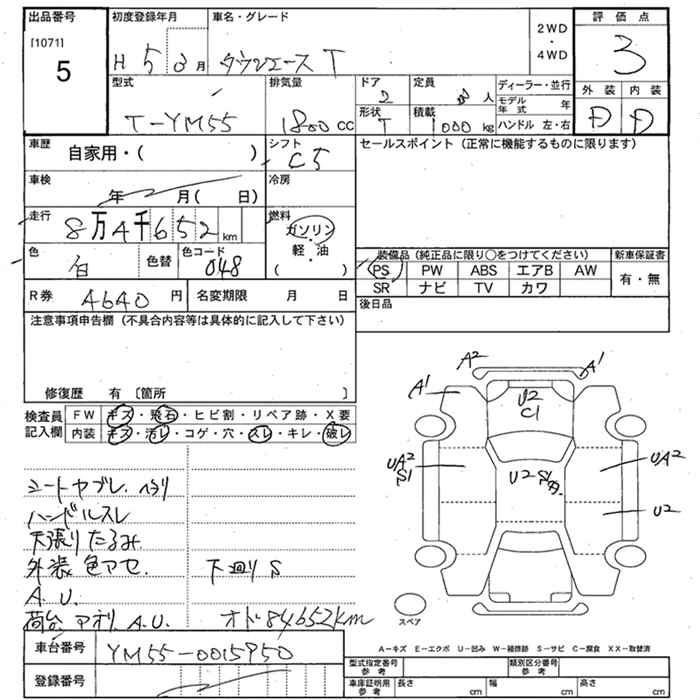 出品番号 初度登録年月 車名・グレード 2WD・4WD 評価点
[1071]
5
H 5 3月 タウンエース T
3
型式 排気量 ドア 2 定員 人 ディーラー・並行 外装 内装
モデル年式 年
T-YM55 1800 CC 形状 T 積載 1000 kg ハンドル 左・右 D D
車歴 自家用・( ) シフト C5 セールスポイント (正常に機能するものに限ります)
車検 年 月( 日) 冷房
走行 8万4千652km 燃料 ガソリン・軽・油 ( )
色 白 色替 色コード 048
装備品 (純正品に限り○をつけてください) 新車保証書
PS PW ABS エアB AW 有・無
SR ナビ TV カワ
R券 4640円 名変期限 月 日
後日品
注意事項申告欄 (不具合内容等は具体的に記入して下さい)
修復歴 有 〔箇所 〕
検査員記入欄 FW キズ・飛石・ヒビ割・リペア跡・X要
内装 キズ・汚レ・コゲ・穴・スレ・キレ・破レ
A2 A1
A1
U2
C1
UA2
S1
U2 S1
UA2
U2
シートヤブレ、ヘタリ
ハンドルスレ
天張りたるみ
外装色アセ. 下廻りS
A.U.
荷台アオリA.U. オド84652km
スペア
車台番号 YM55-0015950
A－キズ E－エクボ U－凹み W－補修跡 S－サビ C－腐食 XX－取替済
登録番号
型式指定番号 参考 類別区分番号 参考
車庫証明用 参考 長さ cm 幅 cm 高さ cm